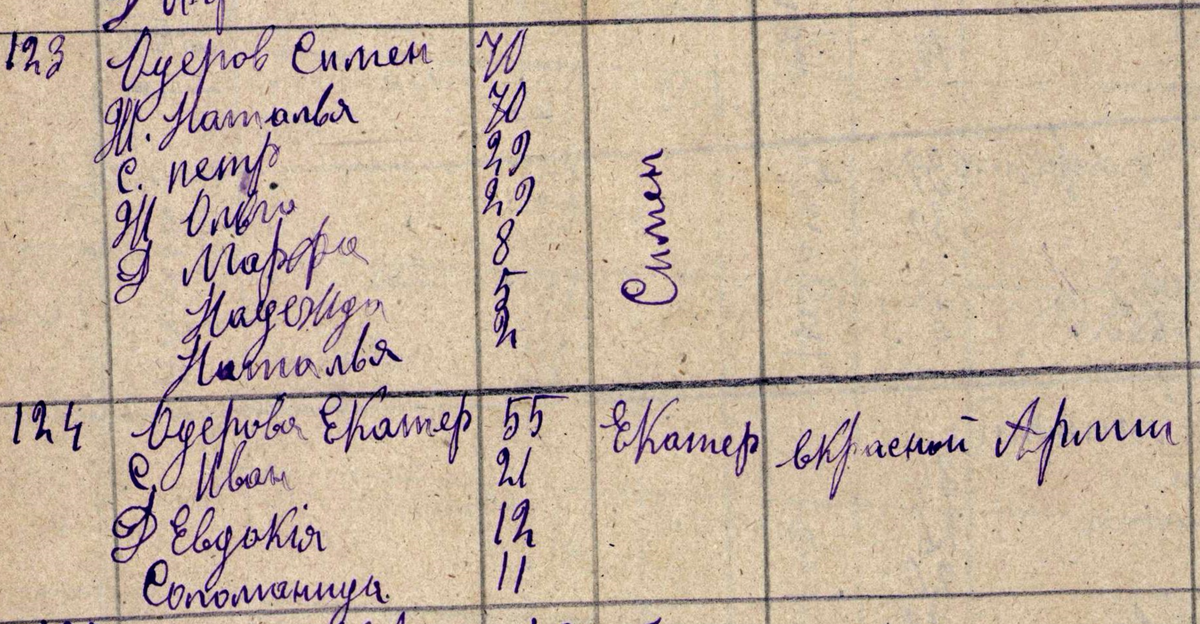 123 Одеров Симен 70
Ж. Наталья 70
С. петр 29
Ж Ольга 29
Д Марфа 8
Надежда 5
Наталья 2
Симен
124 Одерова Екатер 55 Екатер вкрасной Армии
С. Иван 21
Д Евдокія 12
11